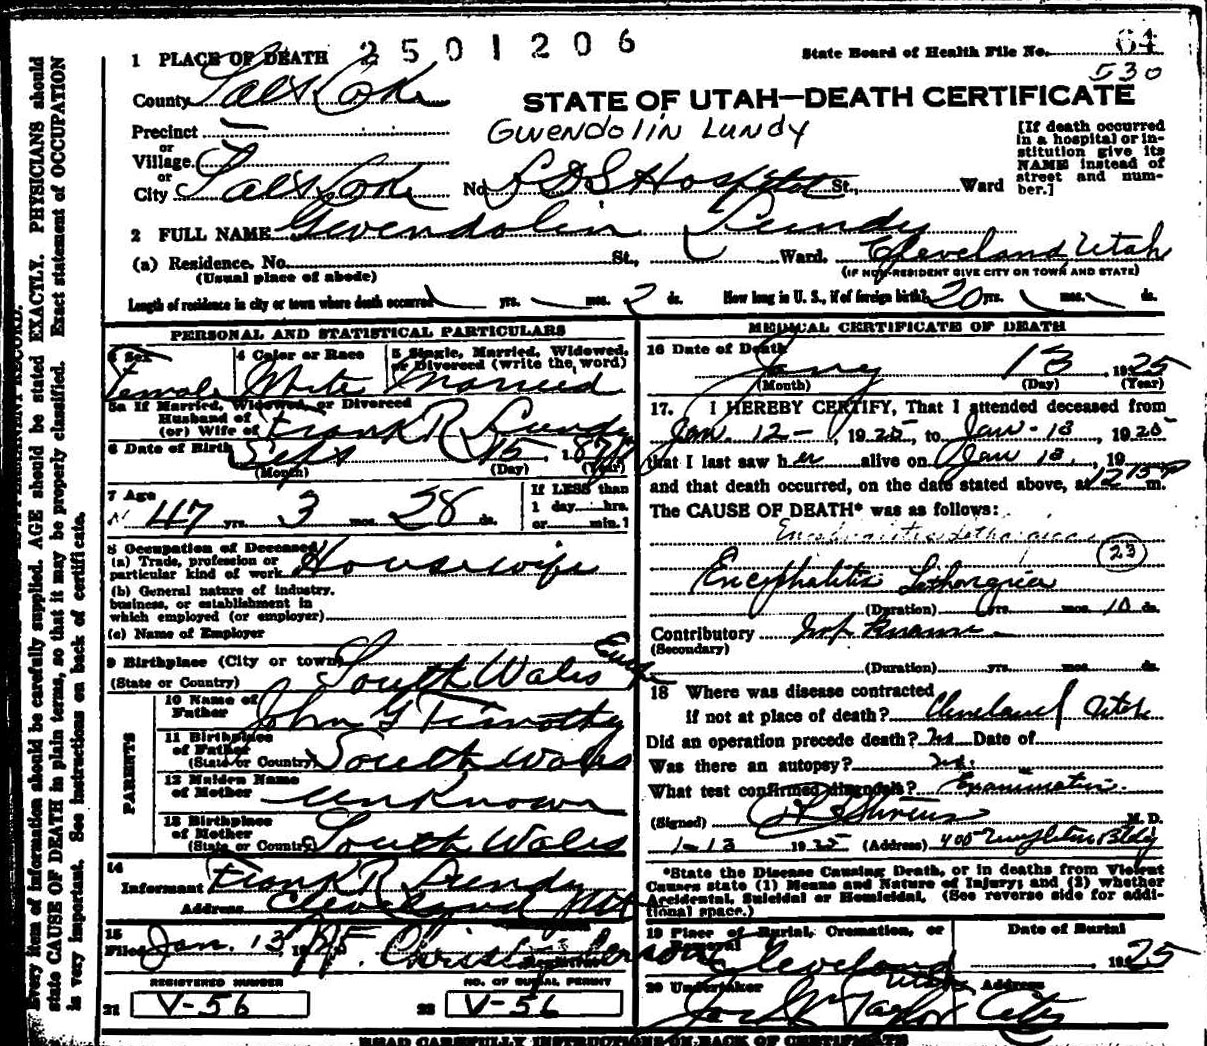 1 PLACE OF DEATH 2501206
State Board of Health File No. 64
530
County Salt Lake
STATE OF UTAH—DEATH CERTIFICATE
Precinct
GWENDOLIN LUNDY
or
Village
or
City Salt Lake No. LDS Hospital St., Ward
[If death occurred
in a hospital or in-
stitution give its
NAME instead of
street and num-
ber.]
2 FULL NAME Gwendolin Lundy
(a) Residence. No. St., Ward. Cleveland, Utah
(Usual place of abode)
(IF NON-RESIDENT GIVE CITY OR TOWN AND STATE)
Length of residence in city or town where death occurred yrs. mos. 2 ds. How long in U. S., if of foreign birth? 20 yrs. mos. ds.
PERSONAL AND STATISTICAL PARTICULARS
3 Sex
Female
4 Color or Race
White
5 Single, Married, Widowed,
or Divorced (write the word)
Married
5a If Married, Widowed, or Divorced
Husband of
(or) Wife of Frank R Lundy
6 Date of Birth Sept 15 187
(Month) (Day) (Year)
7 Age
47 yrs. 3 mos. 28 ds.
If LESS than
1 day hrs.
or min.?
8 Occupation of Deceased
(a) Trade, profession or
particular kind of work Housewife
(b) General nature of industry.
business, or establishment in
which employed (or employer)
(c) Name of Employer
9 Birthplace (City or town) South Wales
(State or Country)
PARENTS
10 Name of
Father John G Timothy
11 Birthplace
of Father
(State or Country) South Wales
12 Maiden Name
of Mother Unknown
13 Birthplace
of Mother
(State or Country) South Wales
14
Informant Frank R Lundy
Address Cleveland Ut
15
Filed Jan. 13
REGISTERED NUMBER
21 V-56
NO. OF BURIAL PERMIT
22 V-56
MEDICAL CERTIFICATE OF DEATH
16 Date of Death
Jany 13, 1925
(Month) (Day) (Year)
17. I HEREBY CERTIFY, That I attended deceased from
Jan. 12-, 1925, to Jan-13, 1925
that I last saw her alive on Jan 13, 19
and that death occurred, on the date stated above, at m.
The CAUSE OF DEATH* was as follows:
Encephalitis Lethargica
23
Encephalitis Lethargica
(Duration) yrs. mos. 10 ds.
Contributory
(Secondary)
(Duration) yrs. mos. ds.
18 Where was disease contracted
if not at place of death? Cleveland Utah
Did an operation precede death? no Date of
Was there an autopsy? no.
What test confirmed diagnosis? Examination
(Signed) M. D.
1-13 1925 (Address) 400 Bldg
*State the Disease Causing Death, or in deaths from Violent
Causes state (1) Means and Nature of Injury; and (2) whether
Accidental, Suicidal or Homicidal. (See reverse side for addi-
tional space.)
19 Place of Burial, Cremation, or
Removal
Cleveland Utah
Date of Burial
1925
20 Undertaker Address
Taylor City
READ CAREFULLY INSTRUCTIONS ON BACK OF CERTIFICATE
Every item of information should be carefully supplied. AGE should be stated EXACTLY. PHYSICIANS should
state CAUSE OF DEATH in plain terms, so that it may be properly classified. Exact statement of OCCUPATION
is very important. See instructions on back of certificate.